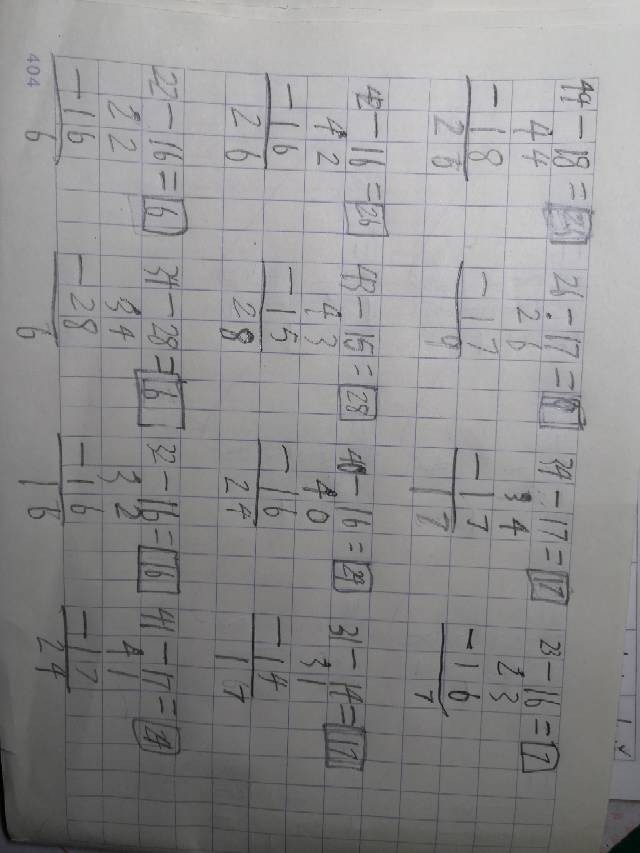 44-18=26 26-17=9 34-17=17 23-16=7
44 26 34 23
-18 -17 -17 -16
26 9 17 7
42-16=26 43-15=28 40-16=24 31-14=17
42 43 40 31
-16 -15 -16 -14
26 28 24 17
22-16=6 34-28=6 32-16=16 41-17=24
22 34 32 41
-16 -28 -16 -17
6 6 16 24
404